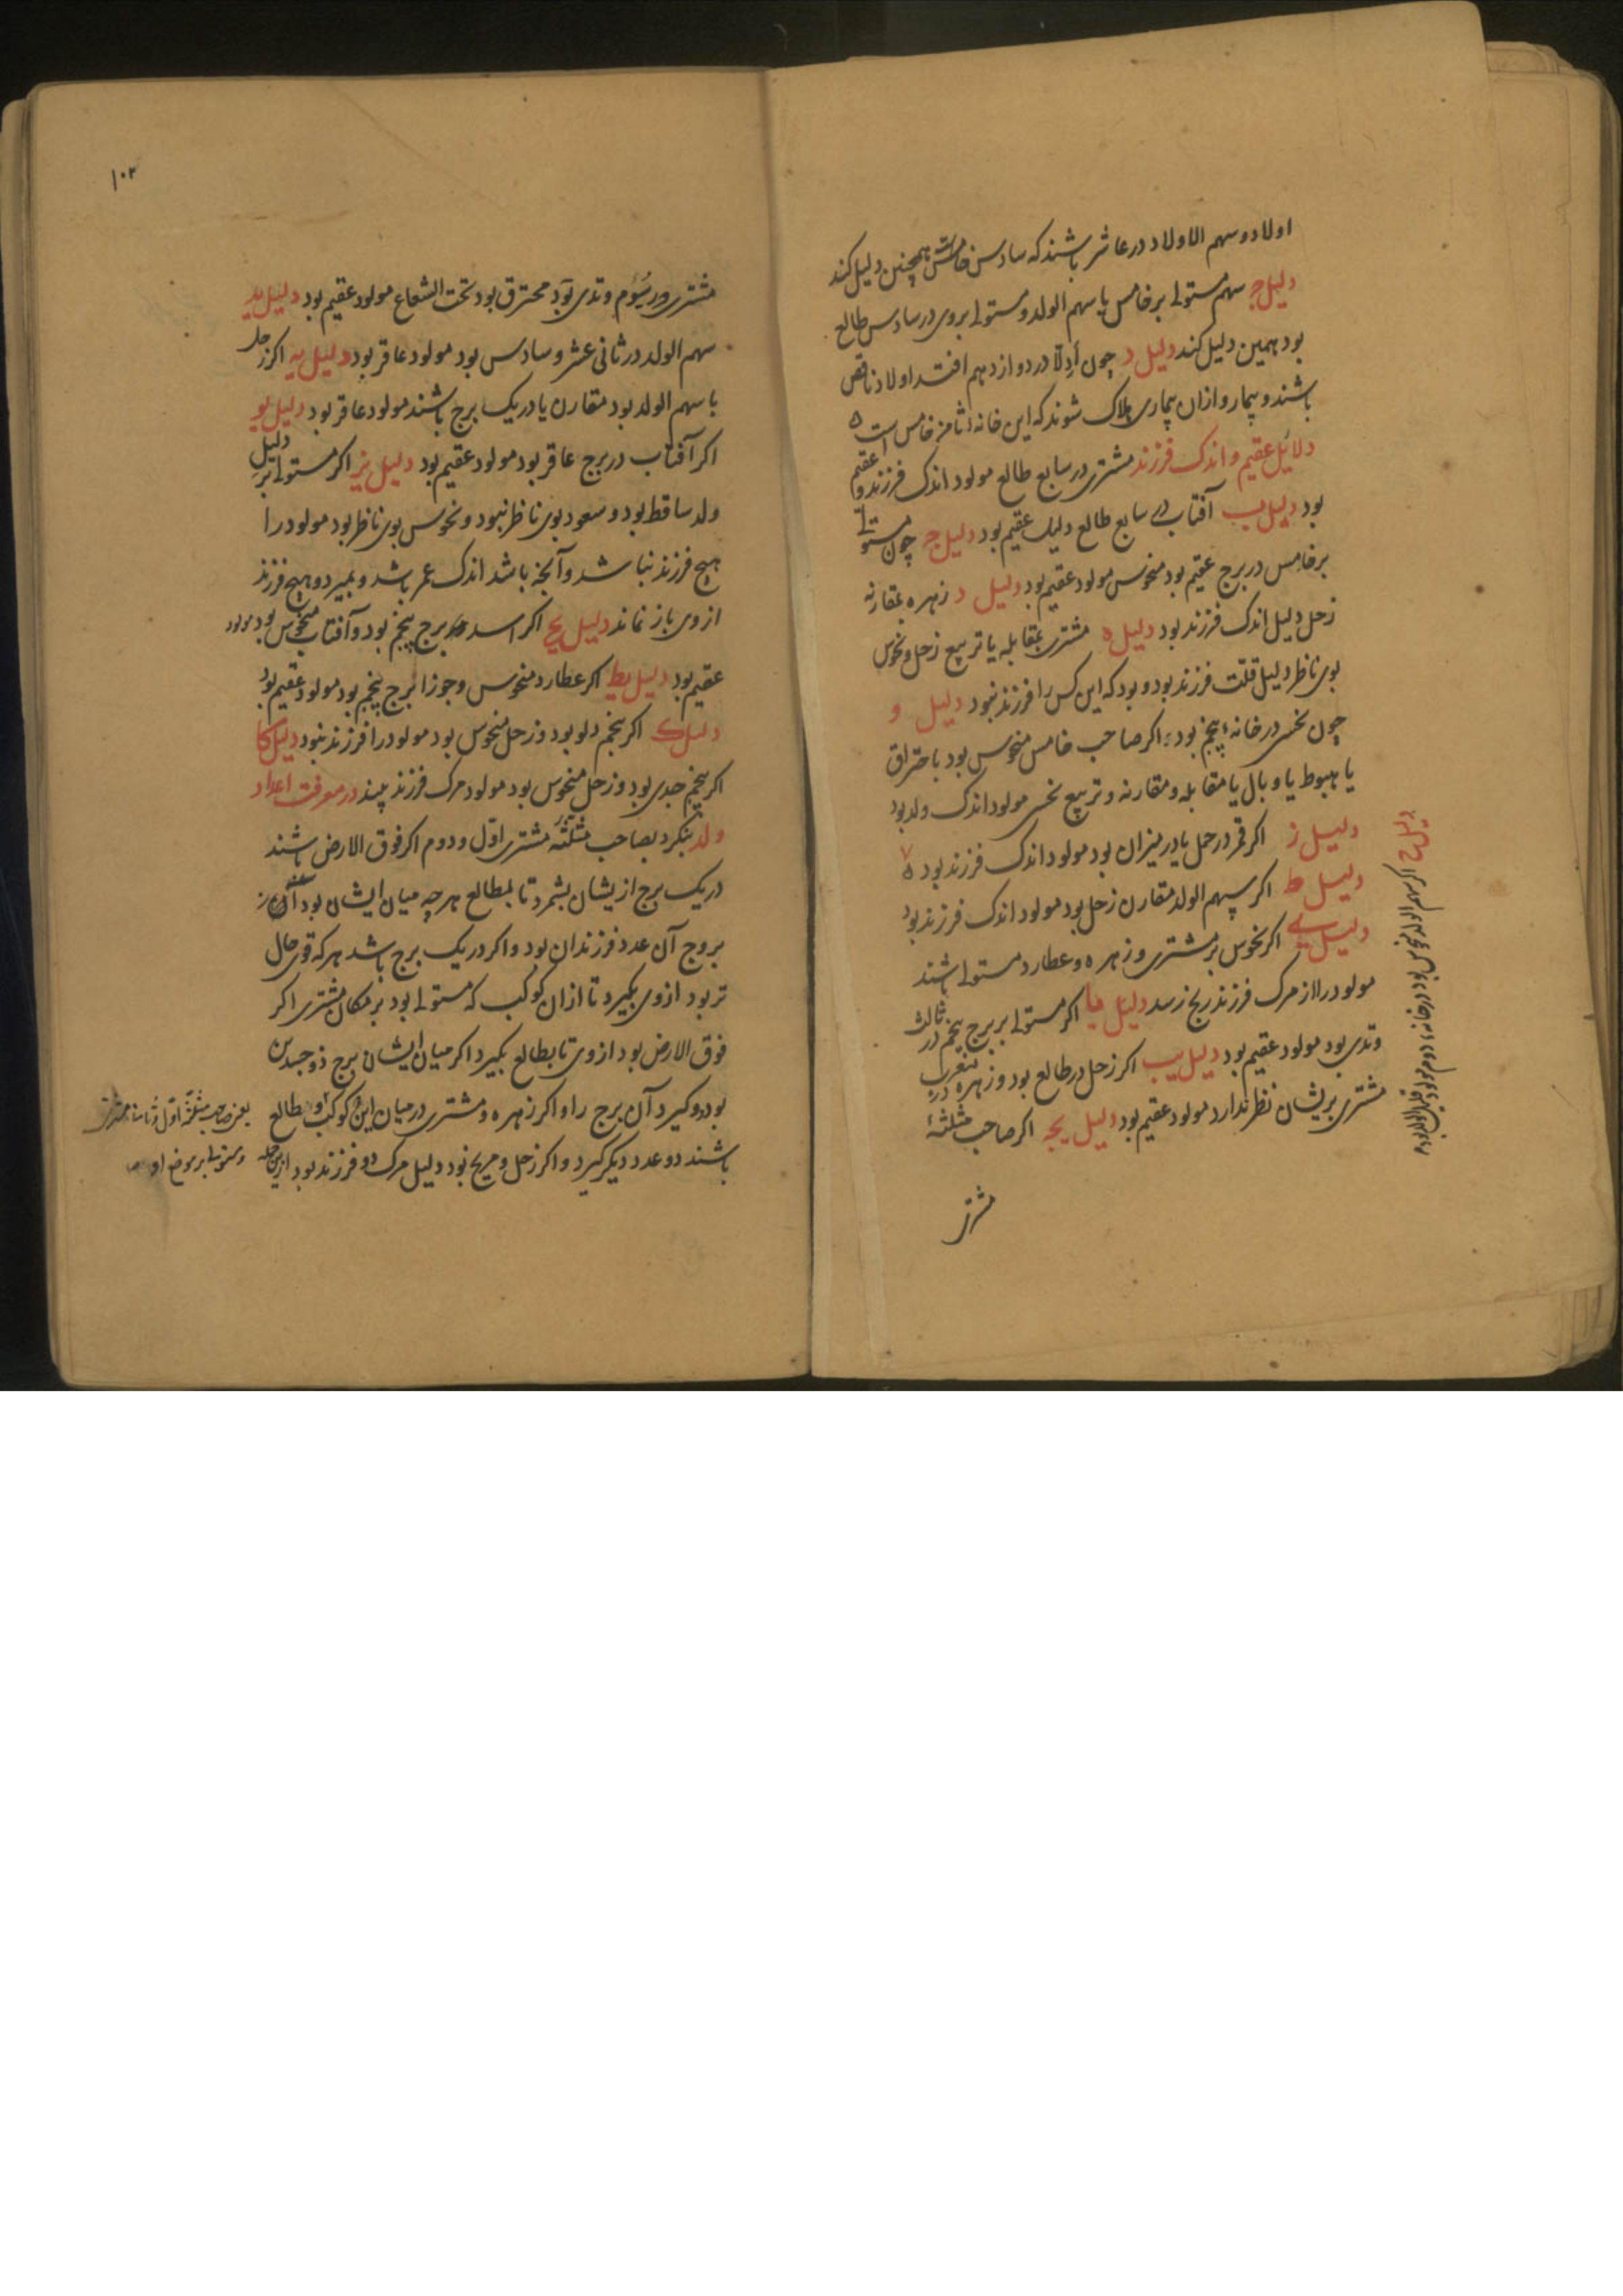 اولاد و سهم الاولاد در عاشر باشند که سادس خامس است همچنین دلیل کند
دلیل ج سهم مستولی بر خامس یا سهم الولد و مستولی بروی در سادس طالع
بود همین دلیل کند دلیل د چون ادلّا در دوازدهم افتد اولاد ناقص
باشند و بیمار و از آن بیماری هلاک شوند که این خانهٔ ثامن خامس است ه
دلائل عقیم و اندک فرزند مشتری در سابع طالع مولود اندک فرزند و یا عقیم
بود دلیل ب آفتاب در سابع طالع دلیل عقیم بود دلیل ج چون مستولی
بر خامس در برج عقیم بود منحوس مولود عقیم بود دلیل د زهره بمقارنه
زحل دلیل اندک فرزند بود دلیل ه مشتری بمقابله یا تربیع زحل و نحوس
بوی ناظر دلیل قلّت فرزند بود و بود که این کس را فرزند نبود دلیل و
چون نحسی در خانهٔ پنجم بود و اکر صاحب خامس منحوس بود باحتراق
یا هبوط یا وبال یا مقابله و مقارنه و تربیع نحسی مولود اندک ولد بود
دلیل ز اکر قمر در حمل یا در میزان بود مولود اندک فرزند بود ه
دلیل ط اکر سهم الولد مقارن زحل بود مولود اندک فرزند بود
دلیل ی اکر نحوس بر مشتری و زهره و عطارد مستولی باشند
مولود را از مرک فرزند رنج رسد دلیل یا اکر مستولی بر برج پنجم در ثالث
وتدی بود مولود عقیم بود دلیل یب اکر زحل در طالع بود و زهره در غرب
مشتری بریشان نظر ندارد مولود عقیم بود دلیل یج اکر صاحب مثلثهٔ
مشتری
دلیل ح اکر سهم الولد منحوس بود در خانهٔ دوم مولود قلیل الاولاد بود
۱۰۲
مشتری در سیُوم وتدی بود محترق بود تحت الشعاع مولود عقیم بود دلیل ید
سهم الولد در ثانی عشر و سادس بود مولود عاقر بود دلیل یه اکر زحل
با سهم الولد بود متقارن یا در یک برج باشند مولود عاقر بود دلیل یو
اکر آفتاب در برج عاقر بود مولود عقیم بود دلیل یز اکر مستولی بر دلیل
ولد ساقط بود و سعود بوی ناظر نبود و نحوس بوی ناظر بود مولود را
هیچ فرزند نباشد و آنچه باشد اندک عمر باشد و بمیرد و هیچ فرزند
از وی باز نماند دلیل یح اکر اسد برج پنجم بود و آفتاب منحوس بود مولود
عقیم بود دلیل یط اکر عطارد منحوس و جوزا برج پنجم بود مولود عقیم بود
دلیل ک اکر پنجم دلو بود و زحل منحوس بود مولود را فرزند نبود دلیل کا
اکر پنجم جدی بود و زحل منحوس بود مولود مرک فرزند بیند در معرفت اعداد
ولد بنکرد بصاحب مثلثه مشتری اوّل و دوم اکر فوق الارض باشند
در یک برج ازیشان بشمرد تا بطالع هر چه میان ایشان بود آن از
بروج آن عدد فرزندان بود و اکر در یک برج باشد هر که قوی حال
تر بود ازوی بکیرد تا از آن کوکب که مستولی بود بر مکان مشتری اکر
فوق الارض بود از وی تا بطالع بکیرد اکر میان ایشان برج ذو جسدین
بود دو کیرد آن برج را و اکر زهره و مشتری در میان این کوکب و طالع
باشند دو عدد دیکر کیرد و اکر زحل و مریخ بود دلیل مرک دو فرزند بود ازین جمله
یعنی صاحب مثلثهٔ اوّل و ثانی مشتری
و مستولی بر موضع او